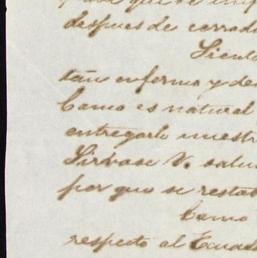 despues de cerrada
Siento
tan enfermo y de
Como es natural
entregarle nuestr
Sirvase V. salu
por que se resta
Como
respecto al Ecuad